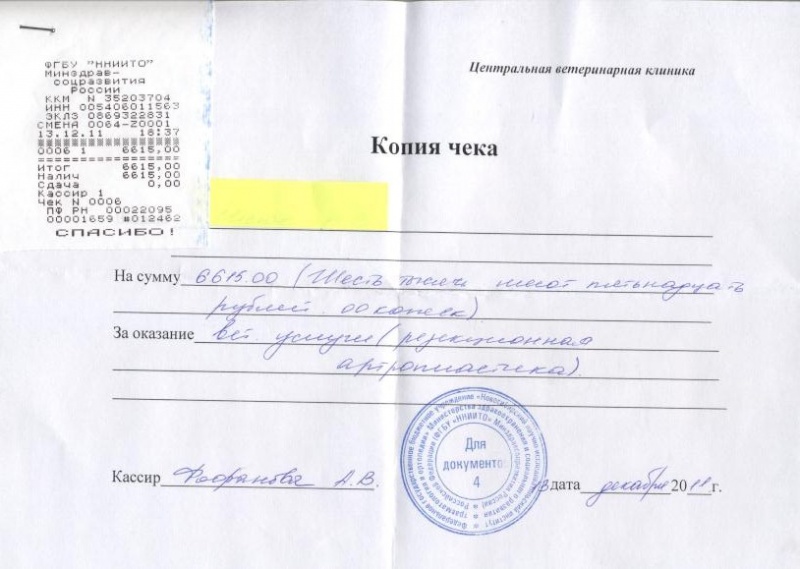 ФГБУ "ННИИТО"
Минздрав-
соцразвития
России
ККМ N 35203704
ИНН 005406011563
ЭКЛЗ 0869322831
СМЕНА 0064-Z0001
13.12.11 18:37
0006 1 6615,00
Итог 6615,00
Налич 6615,00
Сдача 0,00
Кассир 1
Чек N 0006
ПФ РН 00022095
00001659 #012462
СПАСИБО!
Центральная ветеринарная клиника
Копия чека
На сумму 6615.00 (Шесть тысяч шесот пятьнадцать
рублей 00 копеек)
За оказание вет услуги (резекционная
артропластика).
Для
документов
4
Кассир А.В.
13 дата декабря 2011г.